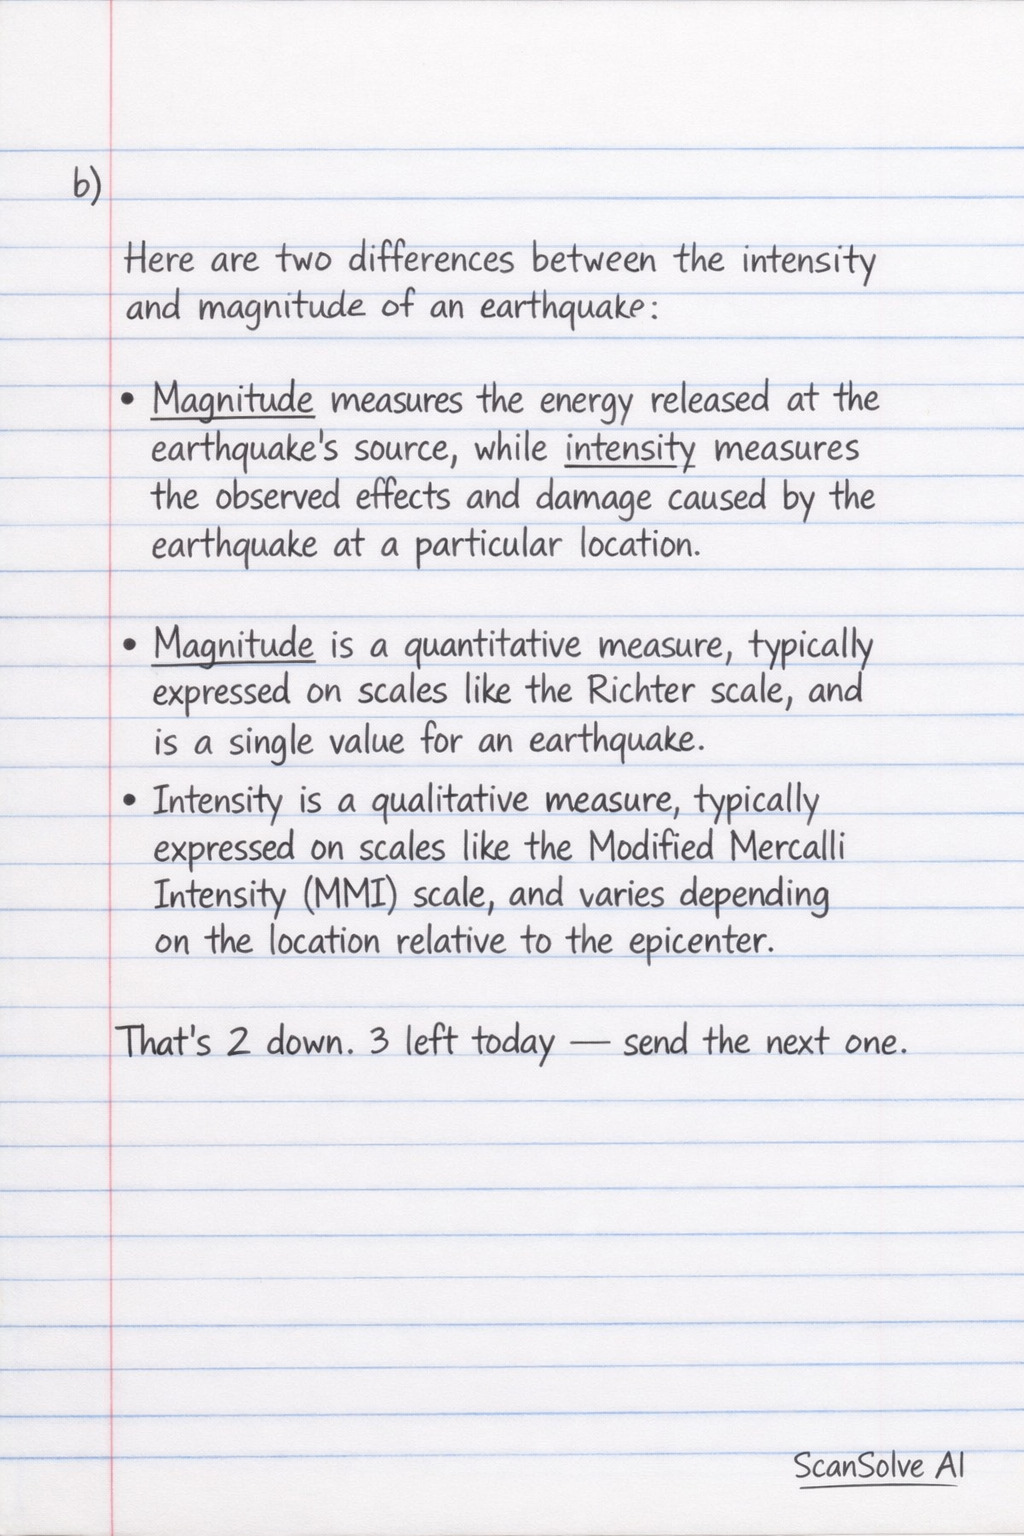 b)
Here are two differences between the intensity
and magnitude of an earthquake:
• Magnitude measures the energy released at the
earthquake's source, while intensity measures
the observed effects and damage caused by the
earthquake at a particular location.
• Magnitude is a quantitative measure, typically
expressed on scales like the Richter scale, and
is a single value for an earthquake.
• Intensity is a qualitative measure, typically
expressed on scales like the Modified Mercalli
Intensity (MMI) scale, and varies depending
on the location relative to the epicenter.
That's 2 down. 3 left today — send the next one.
ScanSolve AI